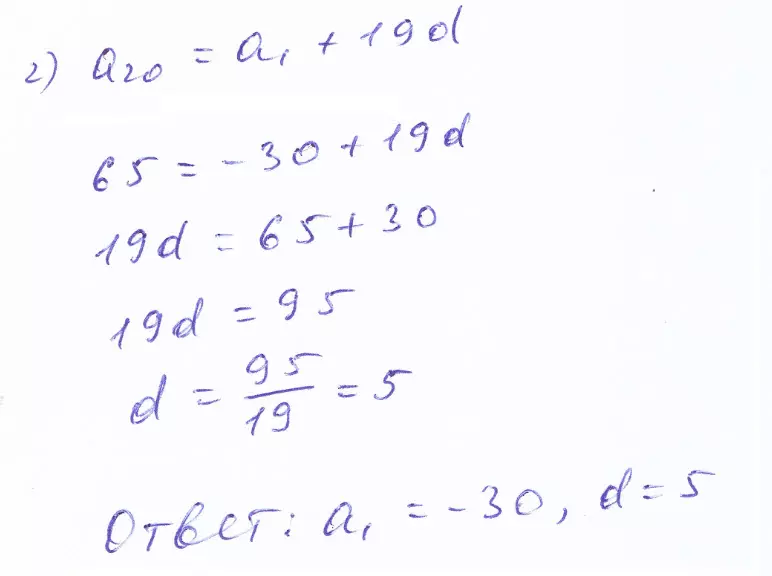 2) a₂₀ = a₁ + 19d
65 = -30 + 19d
19d = 65 + 30
19d = 95
d = 95/19 = 5
Ответ: a₁ = -30, d = 5